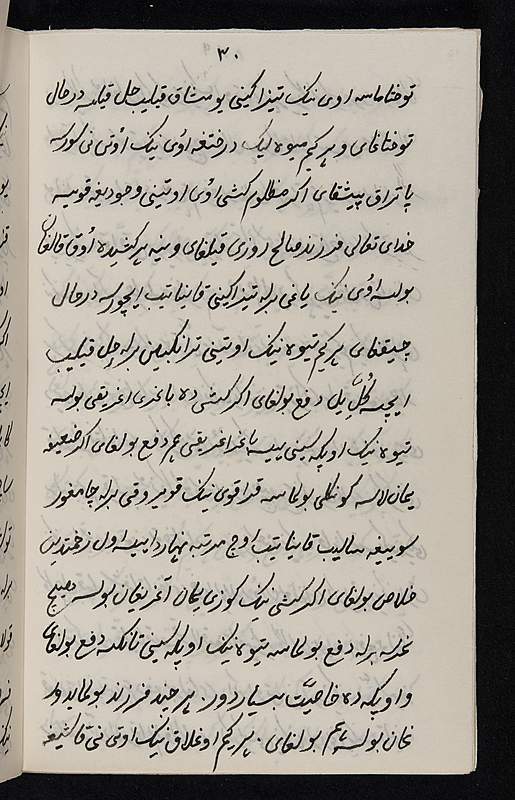 ۳۰
توختاماسه اوی نیک تیزاکینی یومشاق قیلیب حل قیلسه درحال
توختاغای و هر کیم میوه لیک درختغه اوی نیک اوتی نی کورسه
یاتراق پیشقای اکر مظلوم کشی اوی اوتینی وجودیغه قویسه
خدای تعالی فرزند صالح روزی قیلغای وینه هر کشیده اوق قالغان
بولسه اوی نیک یاغی برله تیزاکینی قایناتیب ایچورسه درحال
چیقغای هر کیم تیوه نیک اوتینی ترانکبین برله حل قیلیب
ایچسه کل بیل دفع بولغای اکر کشی ده باغری اغریقی بولسه
تیوه نیک اوپکه سینی ییسه باغر اغریقی هم دفع بولغای اکر ضعیفه
یمان لاسه کونکلی بولماسه قراقوی نیک قویروقی برله جامغور
سوییغه سالیب قایناتیب اوچ مرتبه نهاردا ییسه اول زحمتدین
خلاص بولغای اکر کشی نیک کوزی یمان آغریغان بولسه هیچ
نرسه برله دفع بولماسه تیوه نیک اوپکه سینی تانکسه دفع بولغای
و اوپکه ده خاصیت بسیار دور. هر چند فرزند بولمایدور
غان بولسه هم بولغای. هر کیم اوغلاق نیک اوتی نی قاشیغه